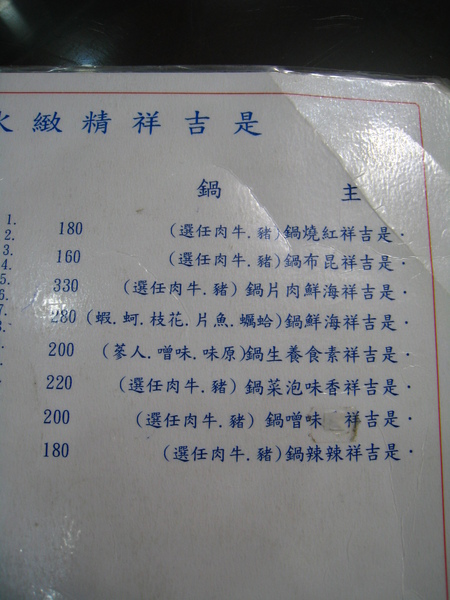 是吉祥精緻
主鍋
·是吉祥紅燒鍋(豬.牛肉任選) 180
·是吉祥昆布鍋(豬.牛肉任選) 160
·是吉祥海鮮肉片鍋(豬.牛肉任選) 330
·是吉祥海鮮鍋(蛤蠣.魚片.花枝.蚵.蝦) 280
·是吉祥素食養生鍋(原味.味噌.人蔘) 200
·是吉祥香味泡菜鍋(豬.牛肉任選) 220
·是吉祥 味噌鍋(豬.牛肉任選) 200
·是吉祥辣辣鍋(豬.牛肉任選) 180
1.
2.
3.
4.
5.
6.